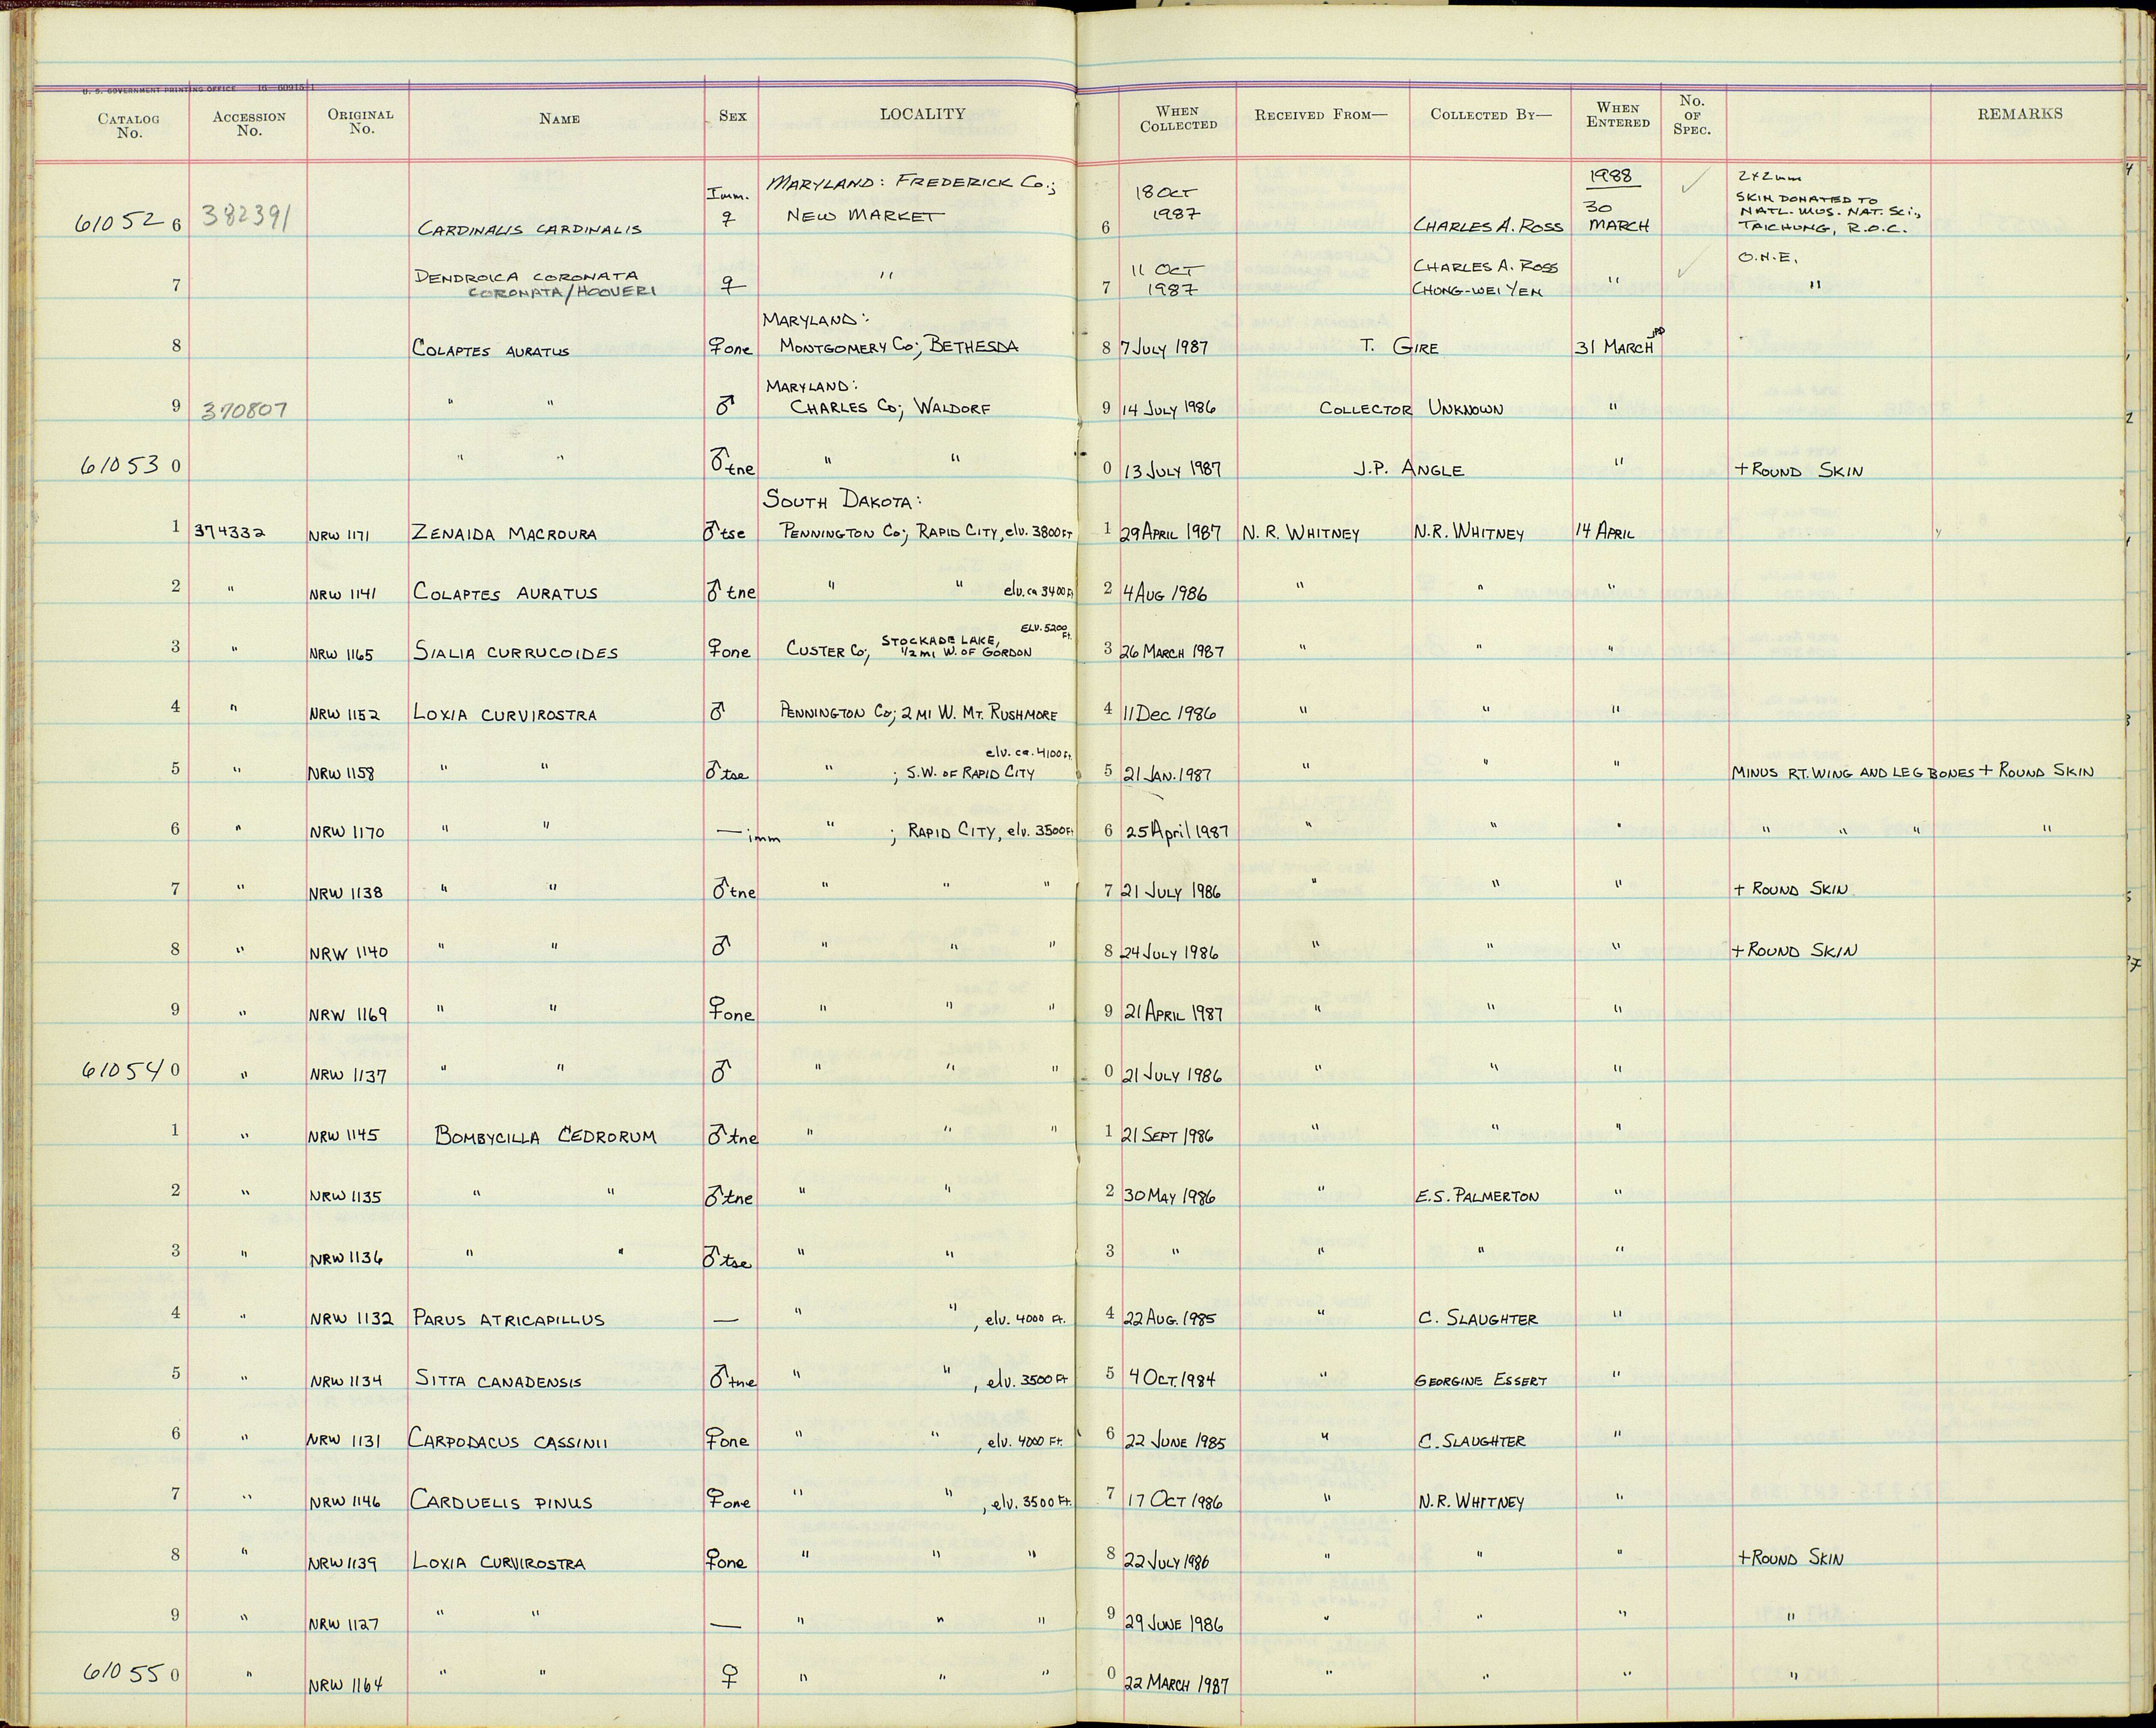 U. S. GOVERNMENT PRINTING OFFICE 16—60915-1
CATALOG No. ACCESSION No. ORIGINAL No. NAME SEX LOCALITY WHEN COLLECTED RECEIVED FROM— COLLECTED BY— WHEN ENTERED No. OF SPEC. REMARKS
61052 6 382391 CARDINALIS CARDINALIS Imm. ♀ MARYLAND: FREDERICK Co.; NEW MARKET 6 18 OCT 1987 CHARLES A. ROSS 1988 30 MARCH ✓ 2×2mm SKIN DONATED TO NATL. MUS. NAT. Sci., TAICHUNG, R.O.C.
7 DENDROICA CORONATA CORONATA/HOOVERI ♀ " 7 11 OCT 1987 CHARLES A. ROSS CHONG-WEI YEN " ✓ O.N.E. "
8 COLAPTES AURATUS ♀one MARYLAND: MONTGOMERY Co; BETHESDA 8 7 JULY 1987 T. GIRE 31 MARCH
9 370807 " " ♂ MARYLAND: CHARLES Co; WALDORF 9 14 JULY 1986 COLLECTOR UNKNOWN "
61053 0 " " ♂tne " " 0 13 JULY 1987 J.P. ANGLE " + ROUND SKIN
1 374332 NRW 1171 ZENAIDA MACROURA ♂tse SOUTH DAKOTA: PENNINGTON Co; RAPID CITY, elv. 3800 FT 1 29 APRIL 1987 N. R. WHITNEY N.R. WHITNEY 14 APRIL
2 " NRW 1141 COLAPTES AURATUS ♂tne " " elv. ca 3400 Ft 2 4 AUG 1986 " " "
3 " NRW 1165 SIALIA CURRUCOIDES ♀one CUSTER Co; STOCKADE LAKE, 1/2 mi W. OF GORDON ELV. 5200 Ft. 3 26 MARCH 1987 " " "
4 " NRW 1152 LOXIA CURVIROSTRA ♂ PENNINGTON Co; 2 MI W. MT. RUSHMORE 4 11 Dec 1986 " " "
5 " NRW 1158 " " ♂tse " ; S.W. OF RAPID CITY elv. ca. 4100 Ft. 5 21 JAN. 1987 " " " MINUS RT. WING AND LEG BONES + ROUND SKIN
6 " NRW 1170 " " — imm " ; RAPID CITY, elv. 3500 Ft 6 25 April 1987 " " " " " " "
7 " NRW 1138 " " ♂tne " " " 7 21 JULY 1986 " " " + ROUND SKIN
8 " NRW 1140 " " ♂ " " " 8 24 JULY 1986 " " " + ROUND SKIN
9 " NRW 1169 " " ♀one " " " 9 21 APRIL 1987 " " "
61054 0 " NRW 1137 " " ♂ " " " 0 21 JULY 1986 " " "
1 " NRW 1145 BOMBYCILLA CEDRORUM ♂tne " " " 1 21 SEPT 1986 " " "
2 " NRW 1135 " " ♂tne " " 2 30 MAY 1986 " E.S. PALMERTON "
3 " NRW 1136 " " ♂tse " " 3 " " " "
4 " NRW 1132 PARUS ATRICAPILLUS — " " , elv. 4000 Ft. 4 22 AUG. 1985 " C. SLAUGHTER "
5 " NRW 1134 SITTA CANADENSIS ♂tne " " , elv. 3500 Ft 5 4 OCT. 1984 " GEORGINE ESSERT "
6 " NRW 1131 CARPODACUS CASSINII ♀one " " , elv. 4000 Ft. 6 22 JUNE 1985 " C. SLAUGHTER "
7 " NRW 1146 CARDUELIS PINUS ♀one " " , elv. 3500 Ft. 7 17 OCT 1986 " N.R. WHITNEY "
8 " NRW 1139 LOXIA CURVIROSTRA ♀one " " " 8 22 JULY 1986 " " " + ROUND SKIN
9 " NRW 1127 " " — " " " 9 29 JUNE 1986 " " " "
61055 0 " NRW 1164 " " ♀ " " " 0 22 MARCH 1987 " " " "